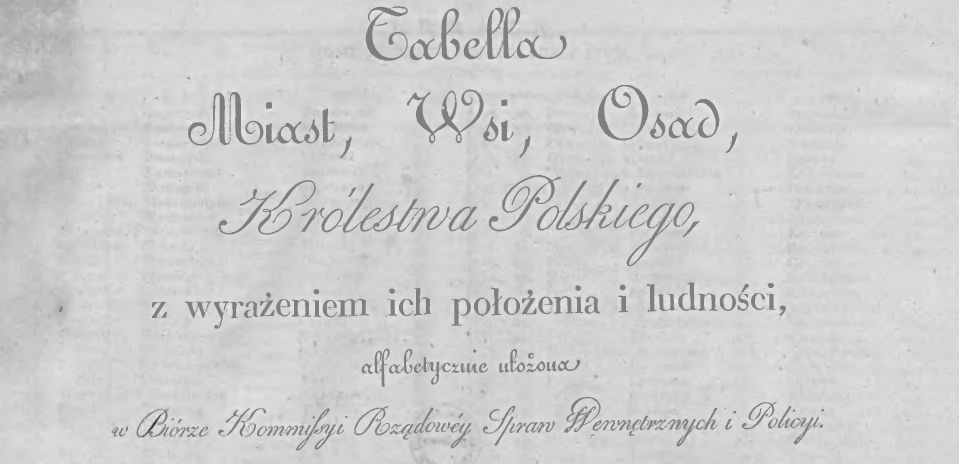 Tabella
Miast, Wsi, Osad,
Królestwa Polskiego,
z wyrażeniem ich położenia i ludności,
alfabetycznie ułożona
w Biórze Kommiſsyi Rządowéy Spraw Wewnętrznych i Policyi.